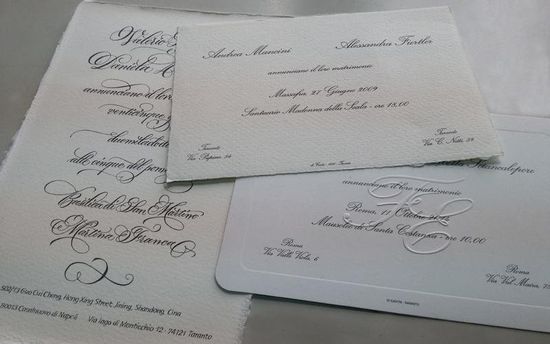 Valerio
Daniela
annunciano il loro
venticinque
duemila
alle cinque del pom
Basilica di San Martino
Martina Franca
502/13 Guo Cui Cheng, Hong Xing Street, Jining, Shandong, Cina
80013 Casalnuovo di Napoli Via lago di Monticchio 12 - 74121 Taranto
Andrea Mancini
Alessandra Furtler
annunciano il loro matrimonio
Massafra 27 Giugno 2009
Santuario Madonna della Scala - ore 18,00
Taranto
Via Pupino, 34
Taranto
Via C. Nitti, 34
annunciano il loro matrimonio
Roma, 11 Ottobre
Mausoleo di Santa Costanza - ore 10,00
Roma
Via Valli, 6
Roma
Via Val Maira, 75